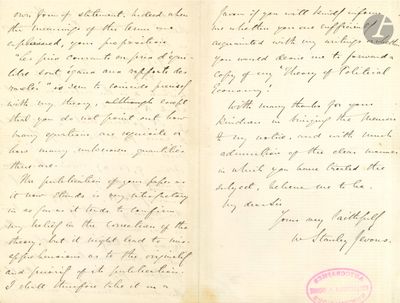 own form of statement. Indeed when
the meanings of the terms are
explained, your proposition
"les prix courants ou prix d'équi-
libre sont égaux aux rapports des
raretés" is seen to coincide precisely
with my theory, although except
that you do not point out how
many equations are requisite or
how many unknown quantities
there are.
The publication of your paper as
it now stands is very satisfactory
in as far as it tends to confirm
my belief in the correctness of the
theory, but it might tend to mis-
apprehensions as to the originality
and priority of its publication.
I shall therefore take it as a
favor if you will kindly inform
me whether you are sufficiently
acquainted with my writings or whether
you would desire me to forward a
copy of my "Theory of Political
Economy."
With many thanks for your
kindness in bringing the Memoir
to my notice, and with much
admiration of the clear manner
in which you have treated the
subject, believe me to be
My dear Sir
Yours very faithfully
W Stanley Jevons.